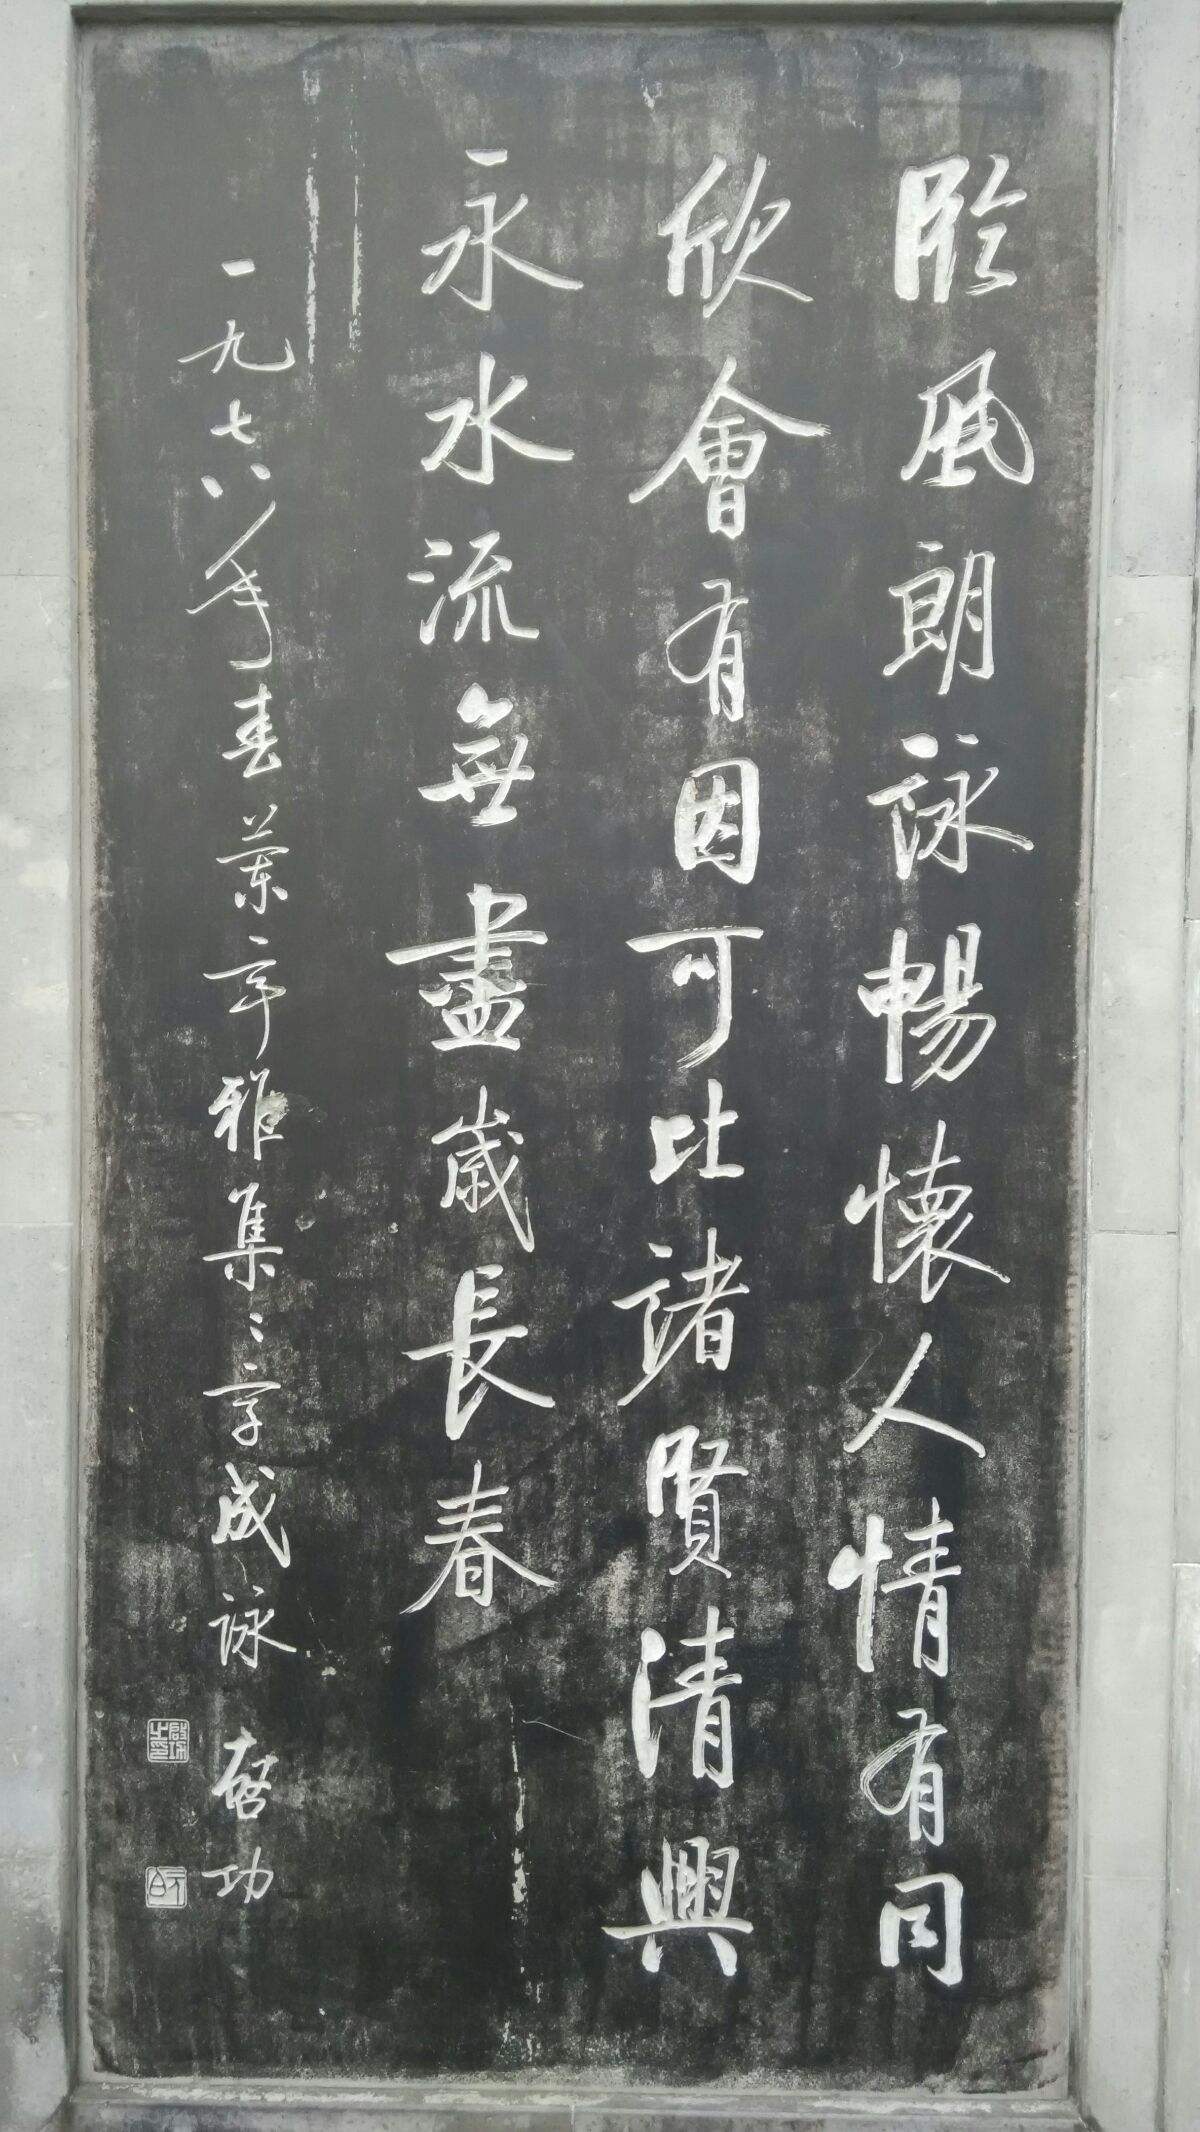 臨風朗詠暢懷人情有同
欣會有因可比諸賢清興
永水流無盡歲長春
一九七八年春蘭亭雅集〻字成詠 啟功
啟功之印